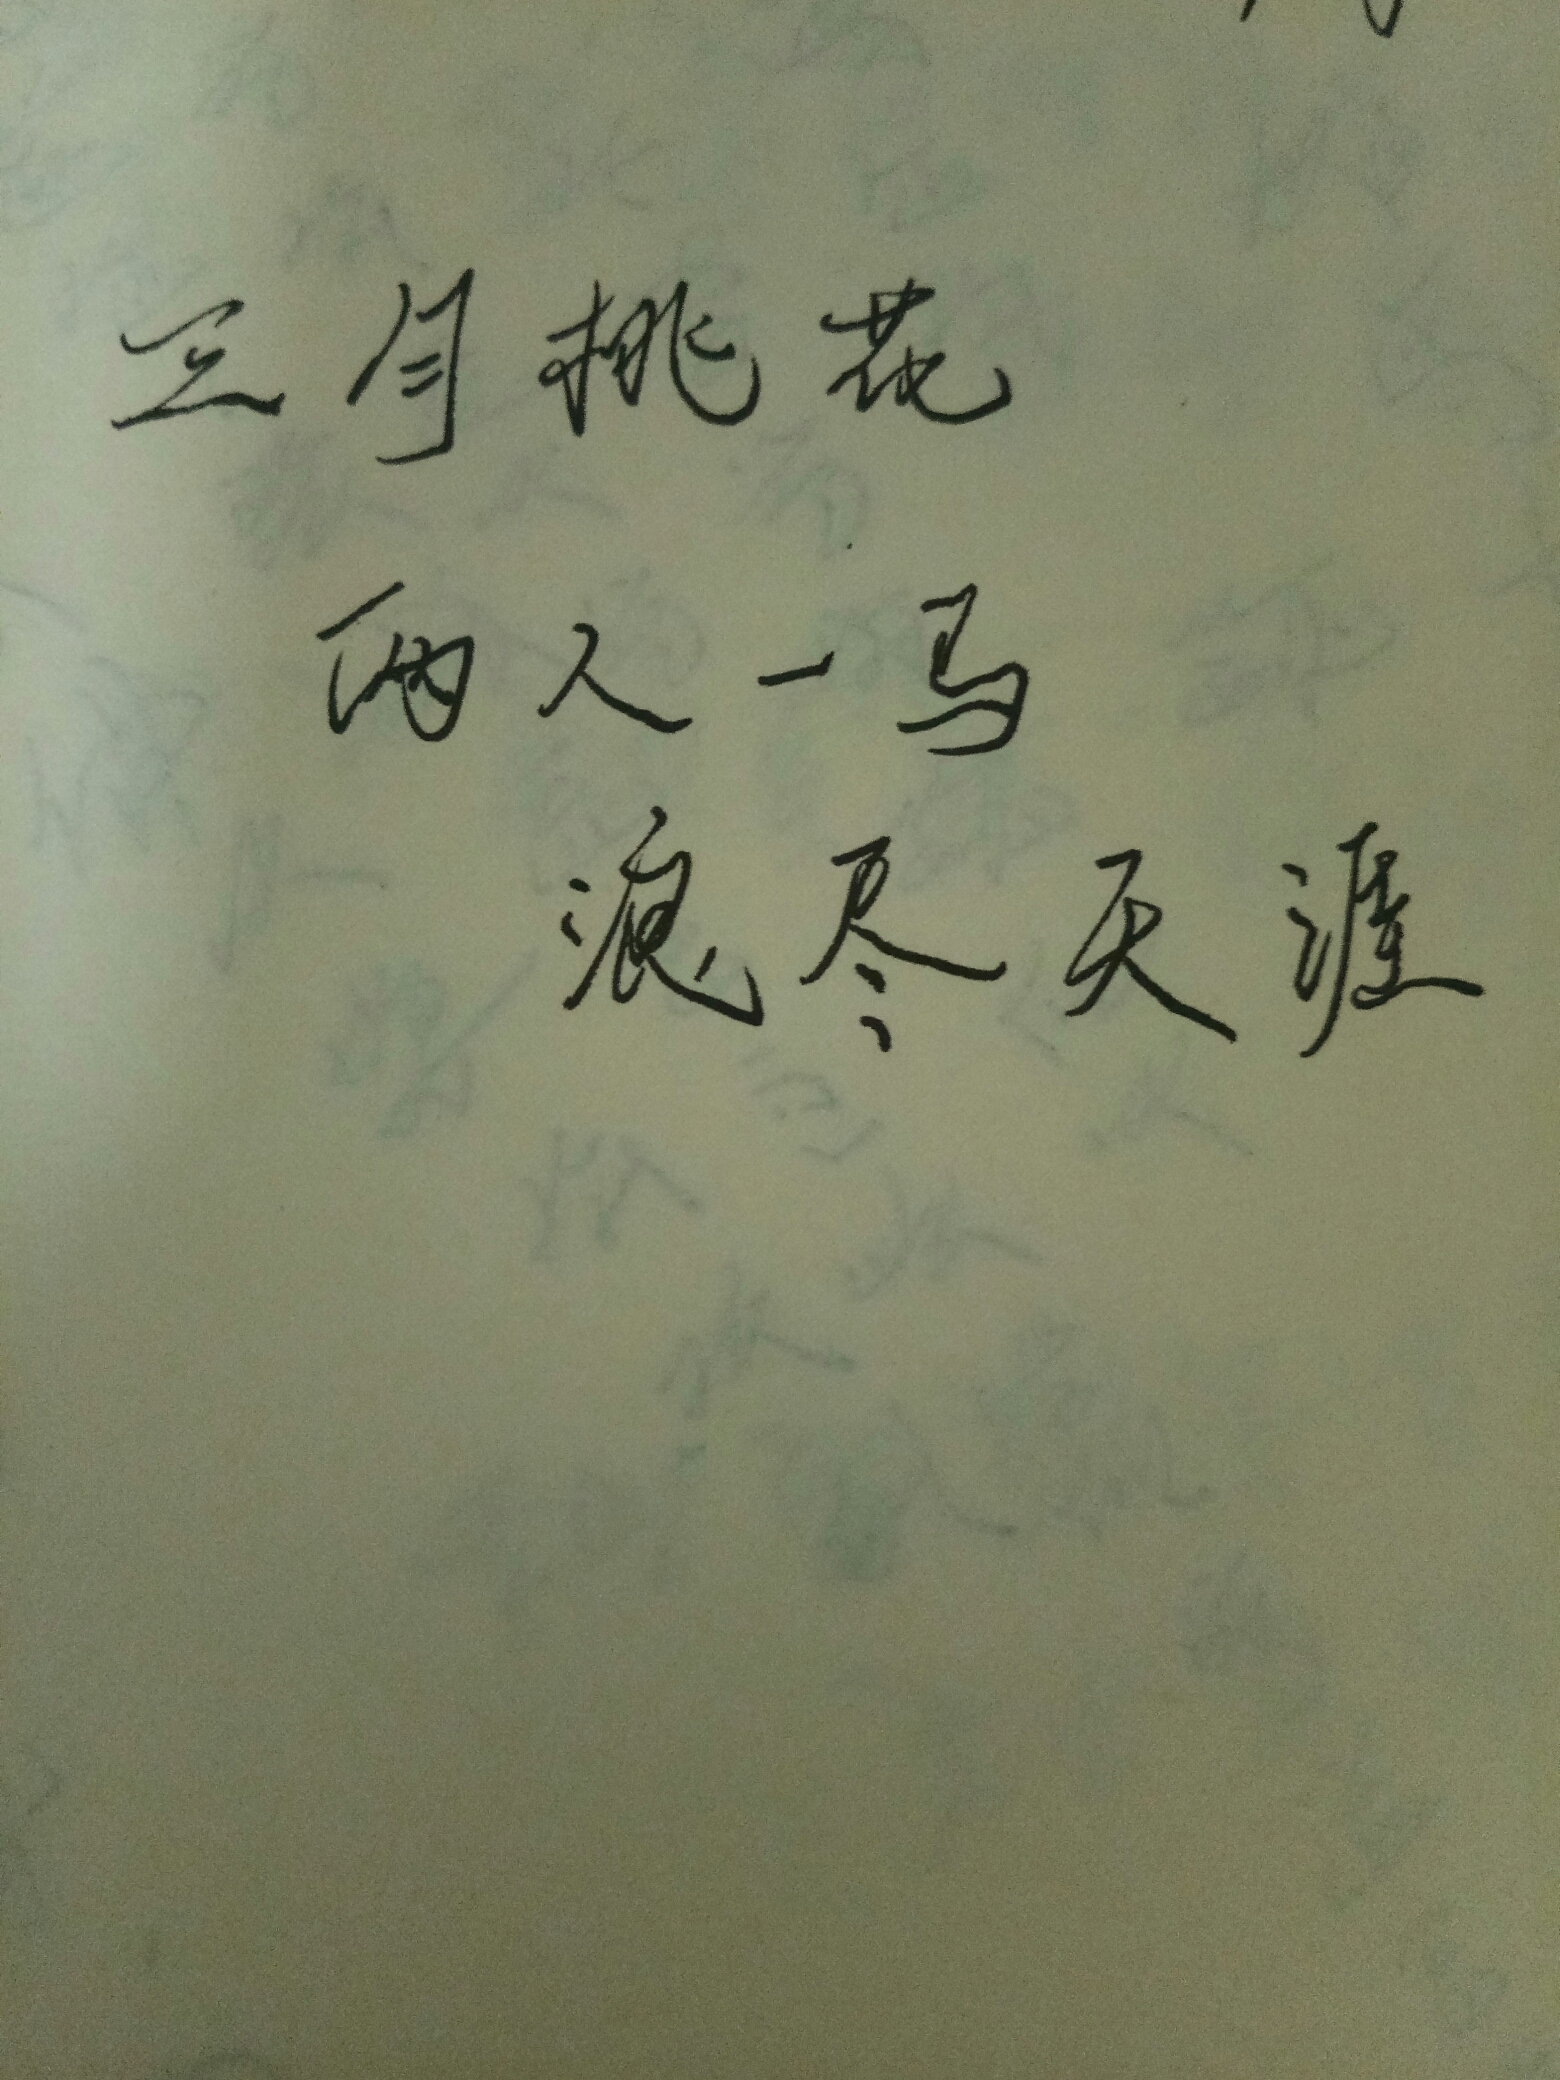 三月桃花
两人一马
浪尽天涯